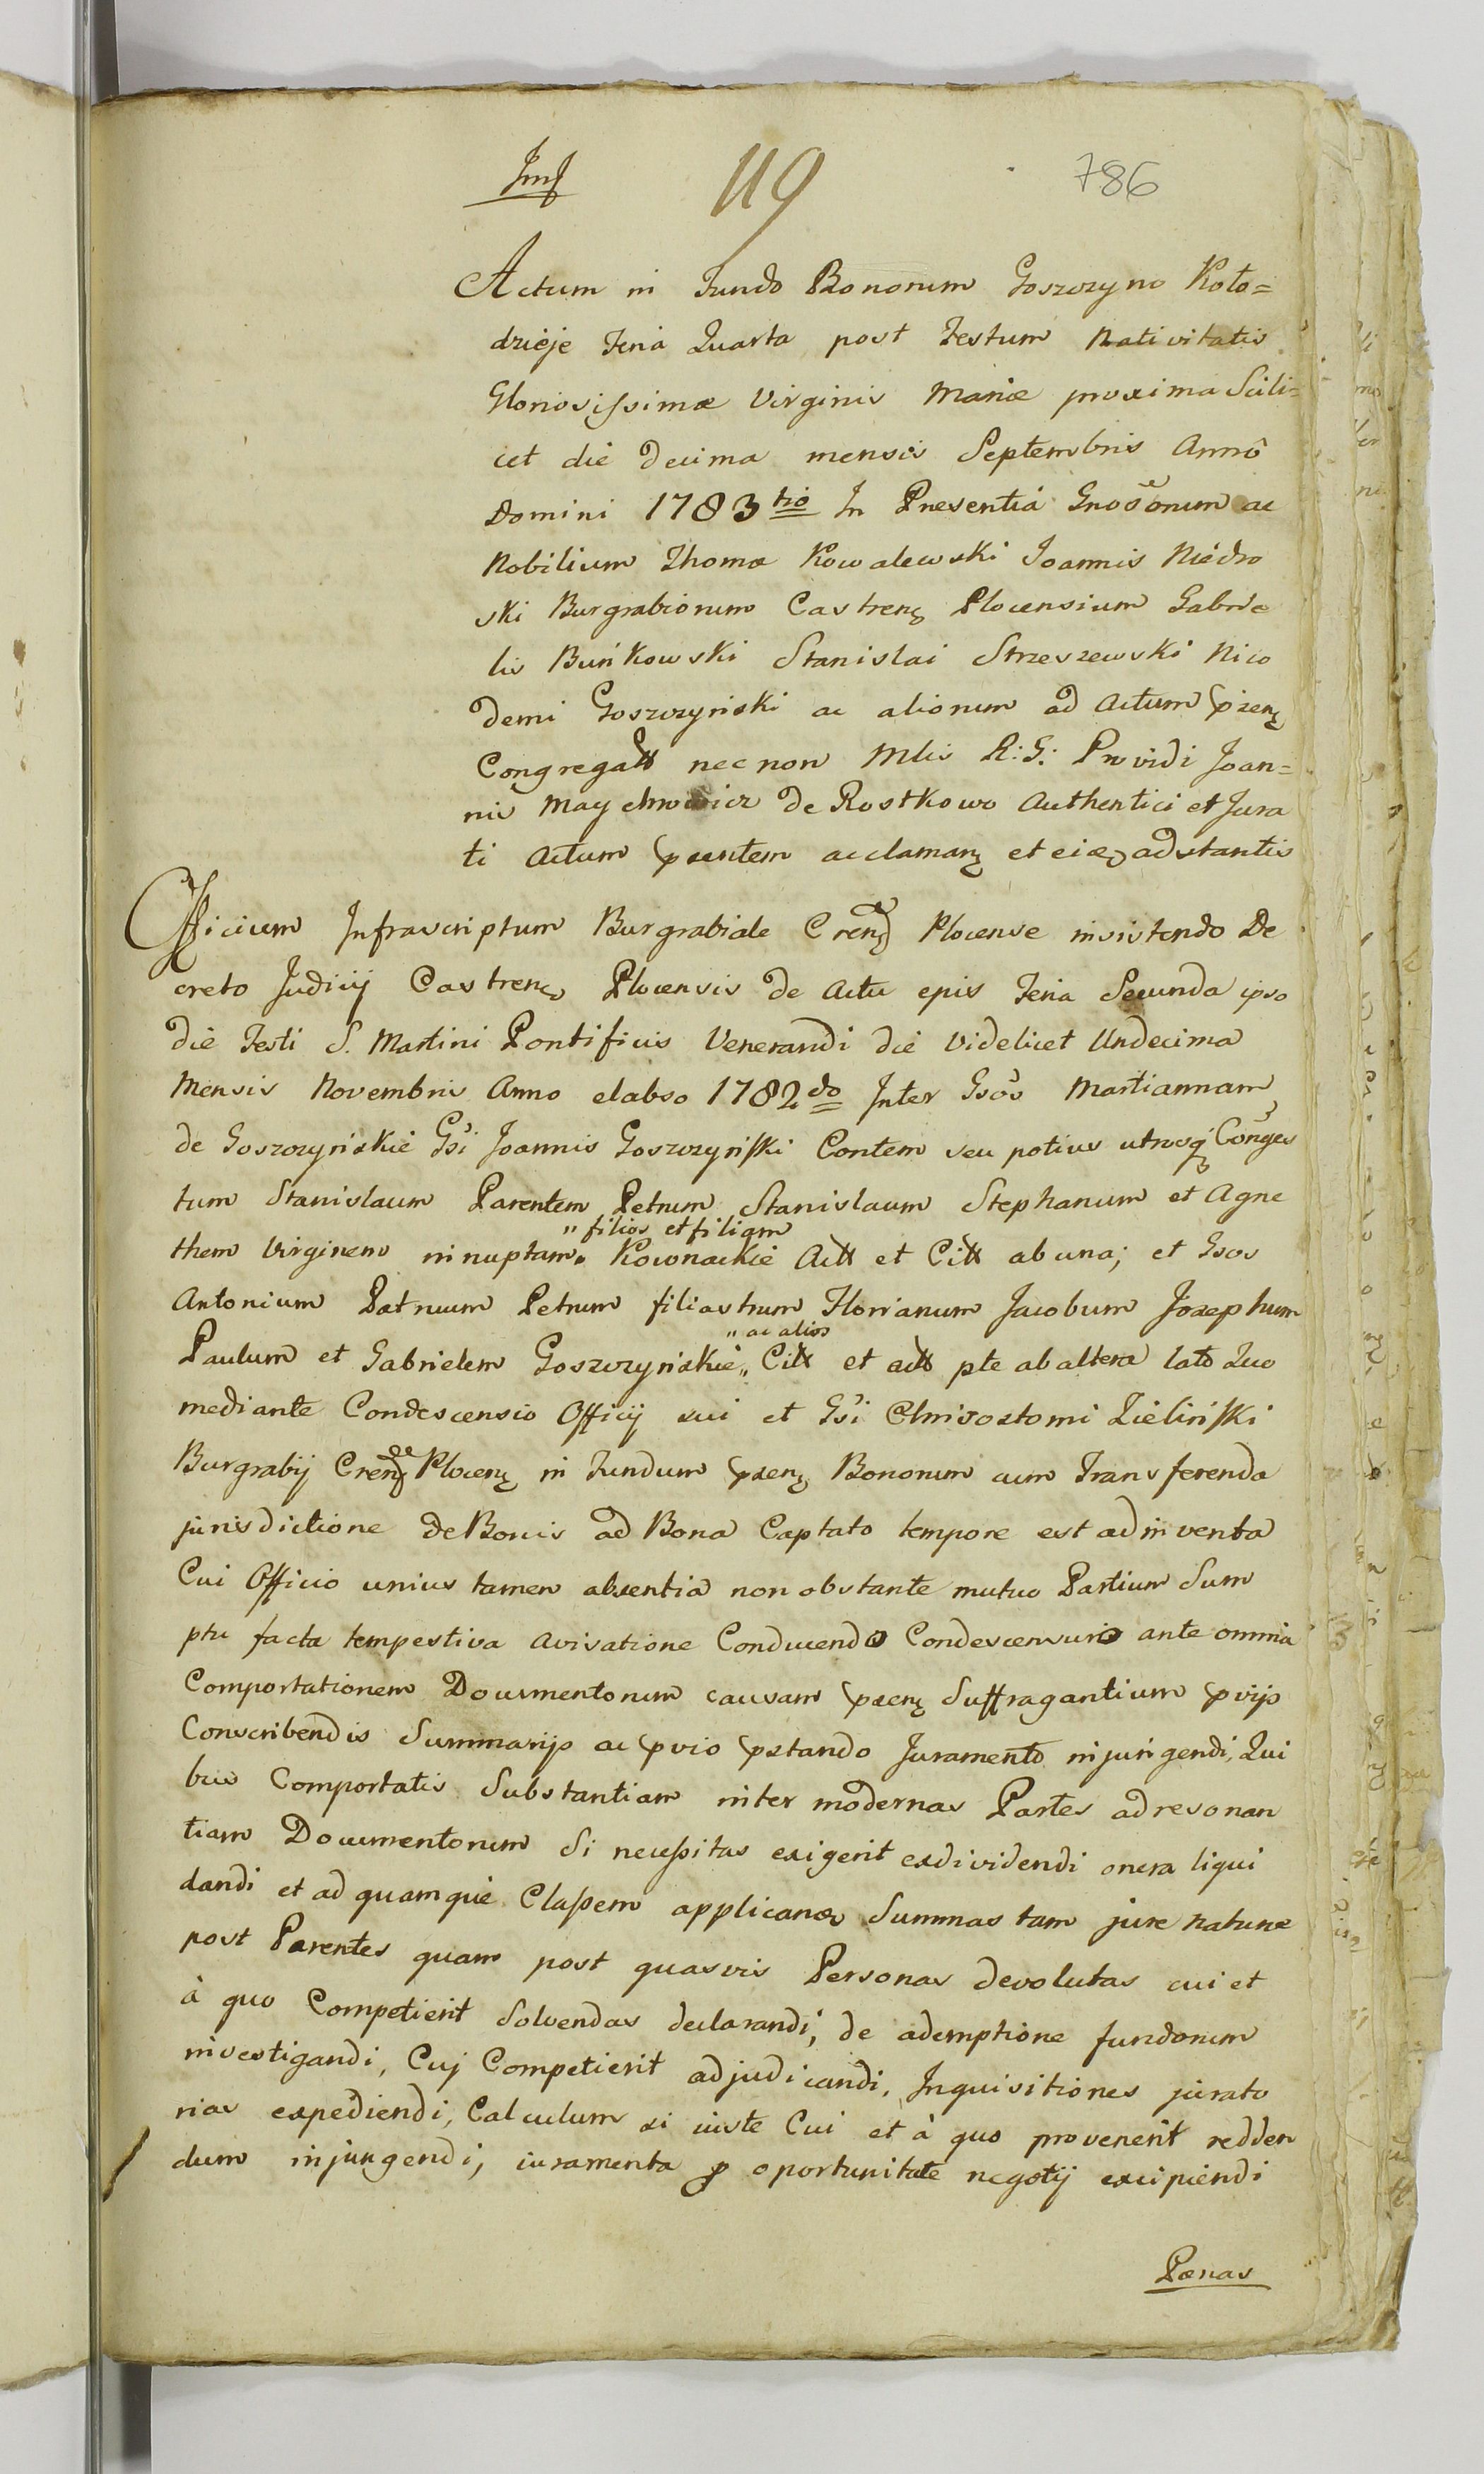 119
786
Actum in Fundo Bonorum Goszczyno Koło=
dzieje Feria Quarta post Festum Nativitatis
Gloriosissimæ Virginis Mariæ proxima Scili=
cet die decima mensis Septembris Annô
Domini 1783tio In Presentia Gnosorum ac
Nobilium Thomæ Kowalewski Joannis Niedro
ski Burgrabiorum Castren Plocensium Gabrie
lis Buńkowski Stanislai Strzeszewski Nico
demi Goszczyński ac aliorum ad Actum pżen
Congregatt nec non Mlis R: G: Providi Joan=
nis de Rostkowo Authentici et Jura
ti Actum pżentem acclaman et adstantis
Officium Infrascriptum Burgrabiale Cren Plocense insistendo De
creto Judicij Castren Plocensis de Actu epis Feria Secunda ipso
die Festi S. Martini Pontificis Venerandi die videlicet Undecima
Mensis Novembris Anno elabso 1782do Inter Gsos Martiannam
de Goszczyńskie Gsi Joannis Goszczyński Contem seu potius utrosq Conges
tum Stanislaum Parentem Petrum Stanislaum Stephanum et Agne
them Virginem innuptam „ filios et filiam Kownackie Actt et Citt ab una; et Gsos
Antonium Patruum Petrum filiastrum Florianum Jacobum Josephum
Paulum et Gabrielem Goszczyńskie „ ac alios Citt et actt pte ab altera lato Quo
mediante Condescensio Officij sui et Gsi Chrisostomi Zieliński
Burgrabij Cren Plocen in Fundum pżen Bonorum cum Transferenda
jurisdictione de Bonis ad Bona Captato tempore est adinventa
Cui Officio unius tamen absentia non obstante mutuo Partium Sum
ptu facta tempestiva avisatione Conducendo Condescensuro ante omnia
Comportationem Documentorum causam pżen Suffragantium pvijs
Conscribendis Summarijs ac pvio pstando Juramento injungendi, Qui
bus Comportatis Substantiam inter modernas Partes ad resonan
tiam Documentorum Si necessitas exigerit exdividendi onera liqui
dandi et ad quamque Classem Summas tam jure naturæ
post Parentes quam post quasvis Personas devolutas cui et
à quo Competierit Solvendas declarandi, de ademptione fundorum
investigandi, Cuj Competierit adjudicandi, Inquisitiones jurato
rias expediendi, Calculum si iuste Cui et à quo provenerit redden
dum injungendi, iuramenta p oportunitate negotij excipiendi
Pænas